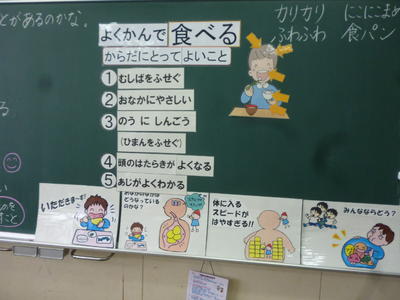 とがあるのかな。
よくかんで 食べる
からだにとってよいこと
①むしばをふせぐ
②おなかにやさしい
③のうにしんごう
(ひまんをふせぐ)
④頭のはたらきが よくなる
⑤あじがよくわかる
カリカリ にこにこまめ
ふわふわ 食パン
いただきまーす!
どうなっている
のかな?
体に入る
スピードが
はやすぎる!!
みんなならどう?